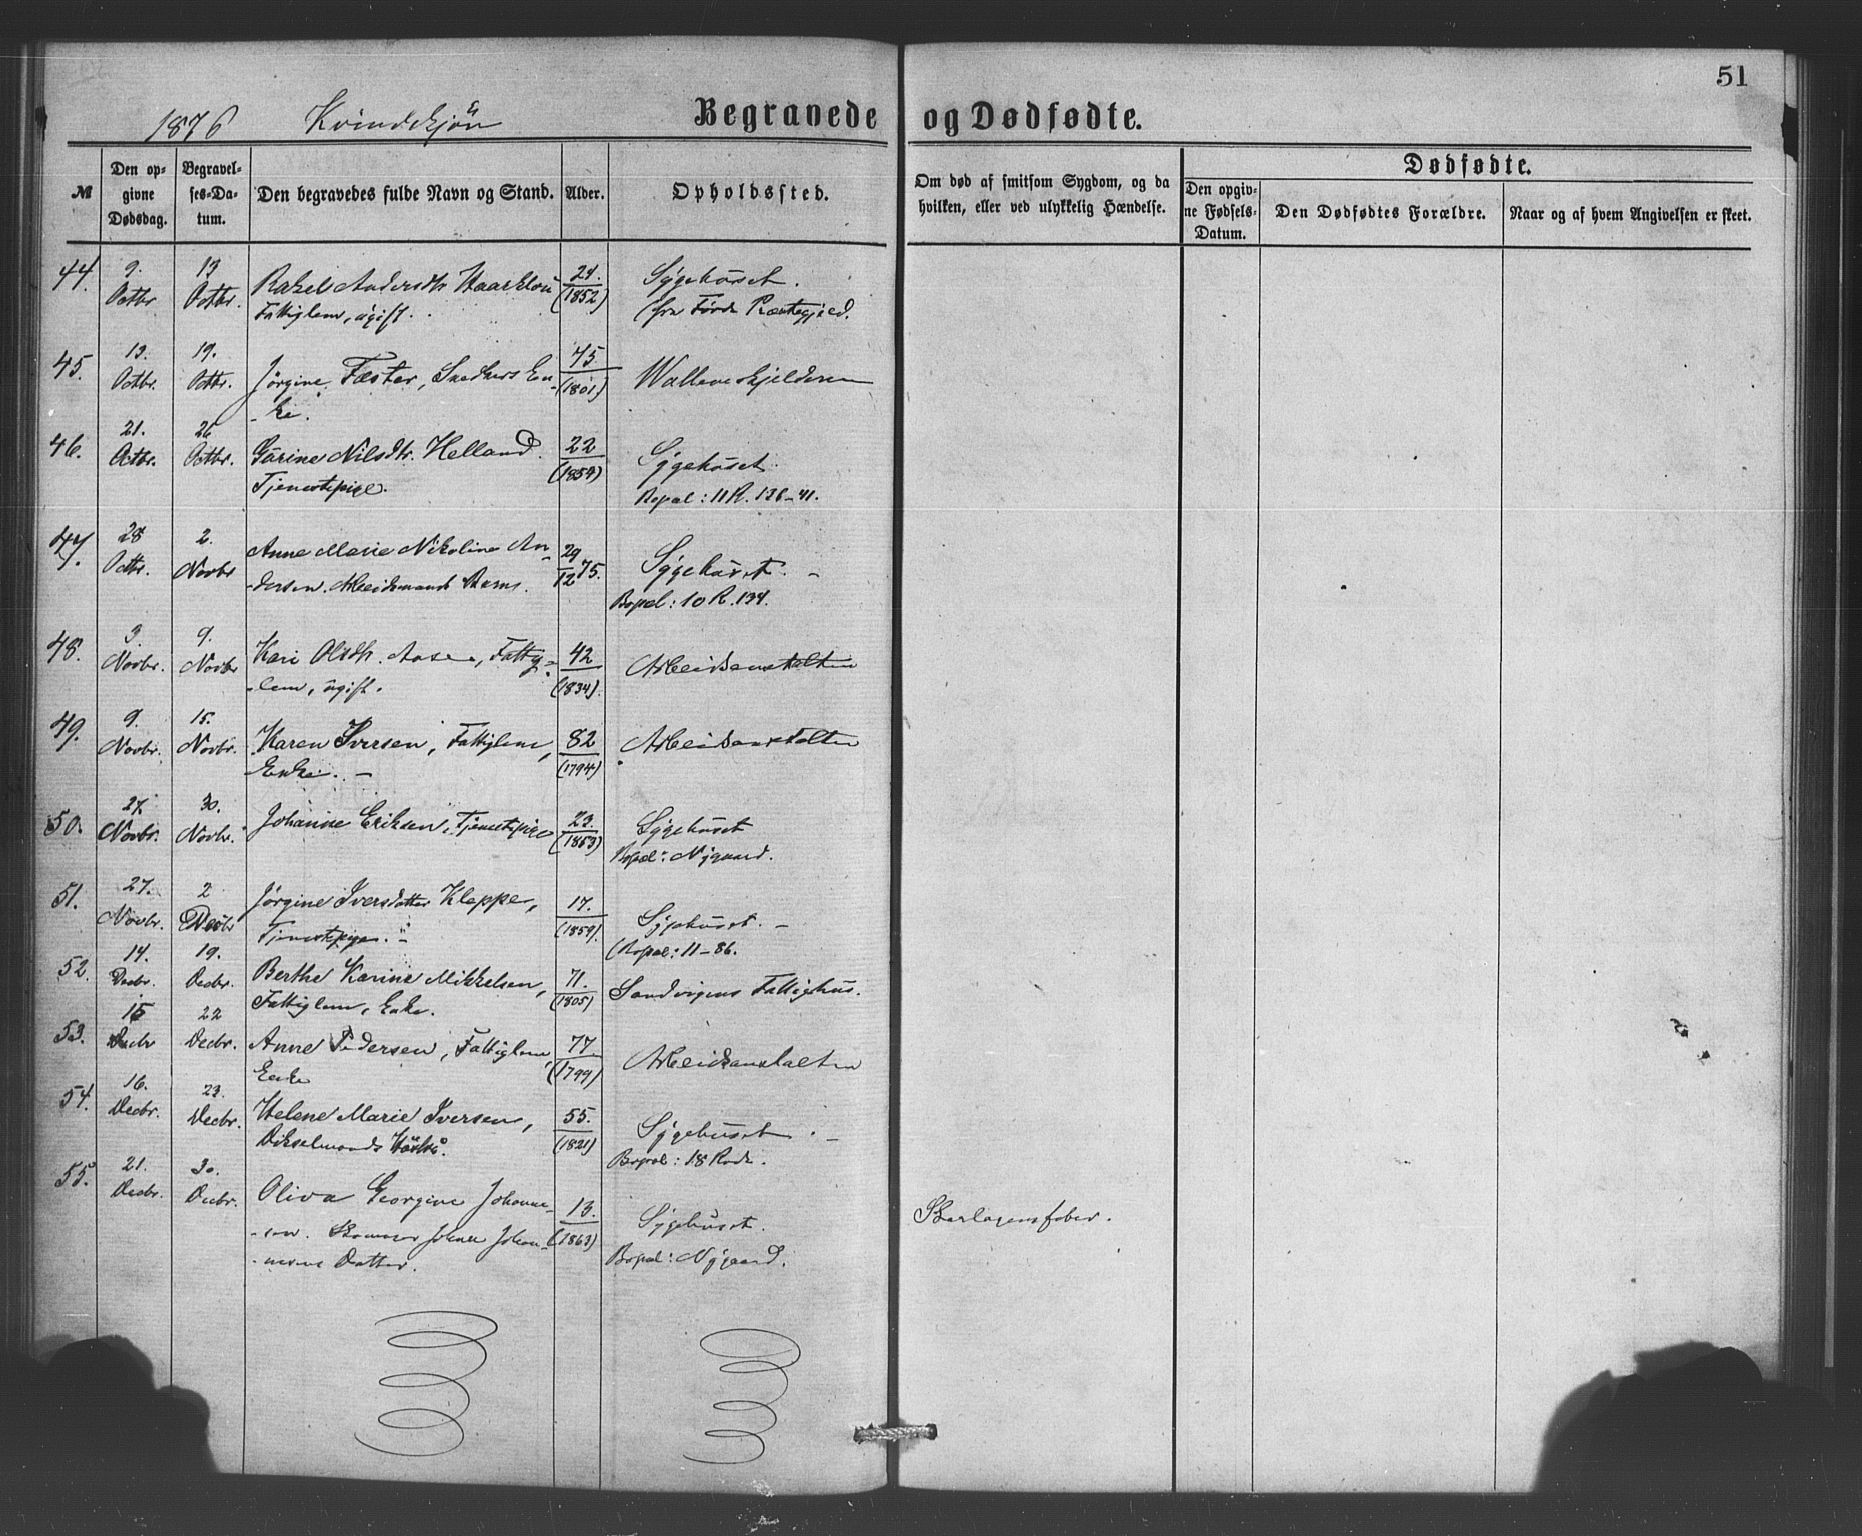 51
1876 Kvindekjön
Begravede og Dødfødte.
№
Den op-
givne
Dødsdag.
Begravel-
ses-Da-
tum.
Den begravedes fulde Navn og Stand.
Alder.
Opholdssted.
Om død af smitsom Sygdom, og da
hvilken, eller ved ulykkelig Hændelse.
Dødfødte.
Den opgiv-
ne Fødsels-
Datum.
Den Dødfødtes Forældre.
Naar og af hvem Angivelsen er skeet.
44. 9. Octbr. 13 Octbr. Rakel Andersdtr 24. (1852) Sygehuset.
Fattiglem, ugift. fra Førde Præstegjeld.
45. 13. Octbr. 19. Octbr. Jørgine Fæster, Snedkers En- 75 (1801)
ke.
46. 21. Octbr. 26 Octbr. Gurine Nilsdtr. Helland. 22 (1854) Sygehuset.
Tjenestepige. Bopæl: 11 R. 136-41.
47. 28 Octbr. 2. Novbr Anne Marie Nikoline An- 29/12 75. Sygehuset. -
-dersen. Arbeidsmands Barn. Bopæl: 10 R. 134.
48. 3. Novbr. 9. Novbr Kari Olsdtr. Aasen, Fattig- 42 (1834). Arbeidsanstalten
-lem, ugift.
49. 9. Novbr. 15. Novbr. Karen Iversen, Fattiglem, 82 (1794) Arbeidsanstalten
Enke. -
50. 27 Novbr. 30. Novbr. Johanne Eriksen, Tjenestepige 23. (1853) Sygehuset
Bopæl: Nygaard.
51. 27. Novbr. 2 Decbr Jørgine Iversdotter Kleppe, 17. (1859). Sygehuset. -
Tjenestepige. - Bopæl: 11-86.
52. 14. Decbr. 19. Decbr. Berthe Karine Mikkelsen, 71. (1805) Sandvigens Fattighus.
Fattiglem, Enke.
53. 15 Decbr 22 Decbr. Anne Pedersen, Fattiglem, 77 (1799) Arbeidsanstalten
Enke
54. 16. Decbr. 23. Decbr. Helene Marie Iversen, 55. (1821) Sygehuset. -
Bopæl: 18 Rode.
55. 21. Decbr. 30. Decbr. Oliva Georgine Johanne- 13. (1863) Sygehuset. Skarlagensfeber.
-sen. Johan Johan-
-nesens Datter. Bopæl: Nygaard.